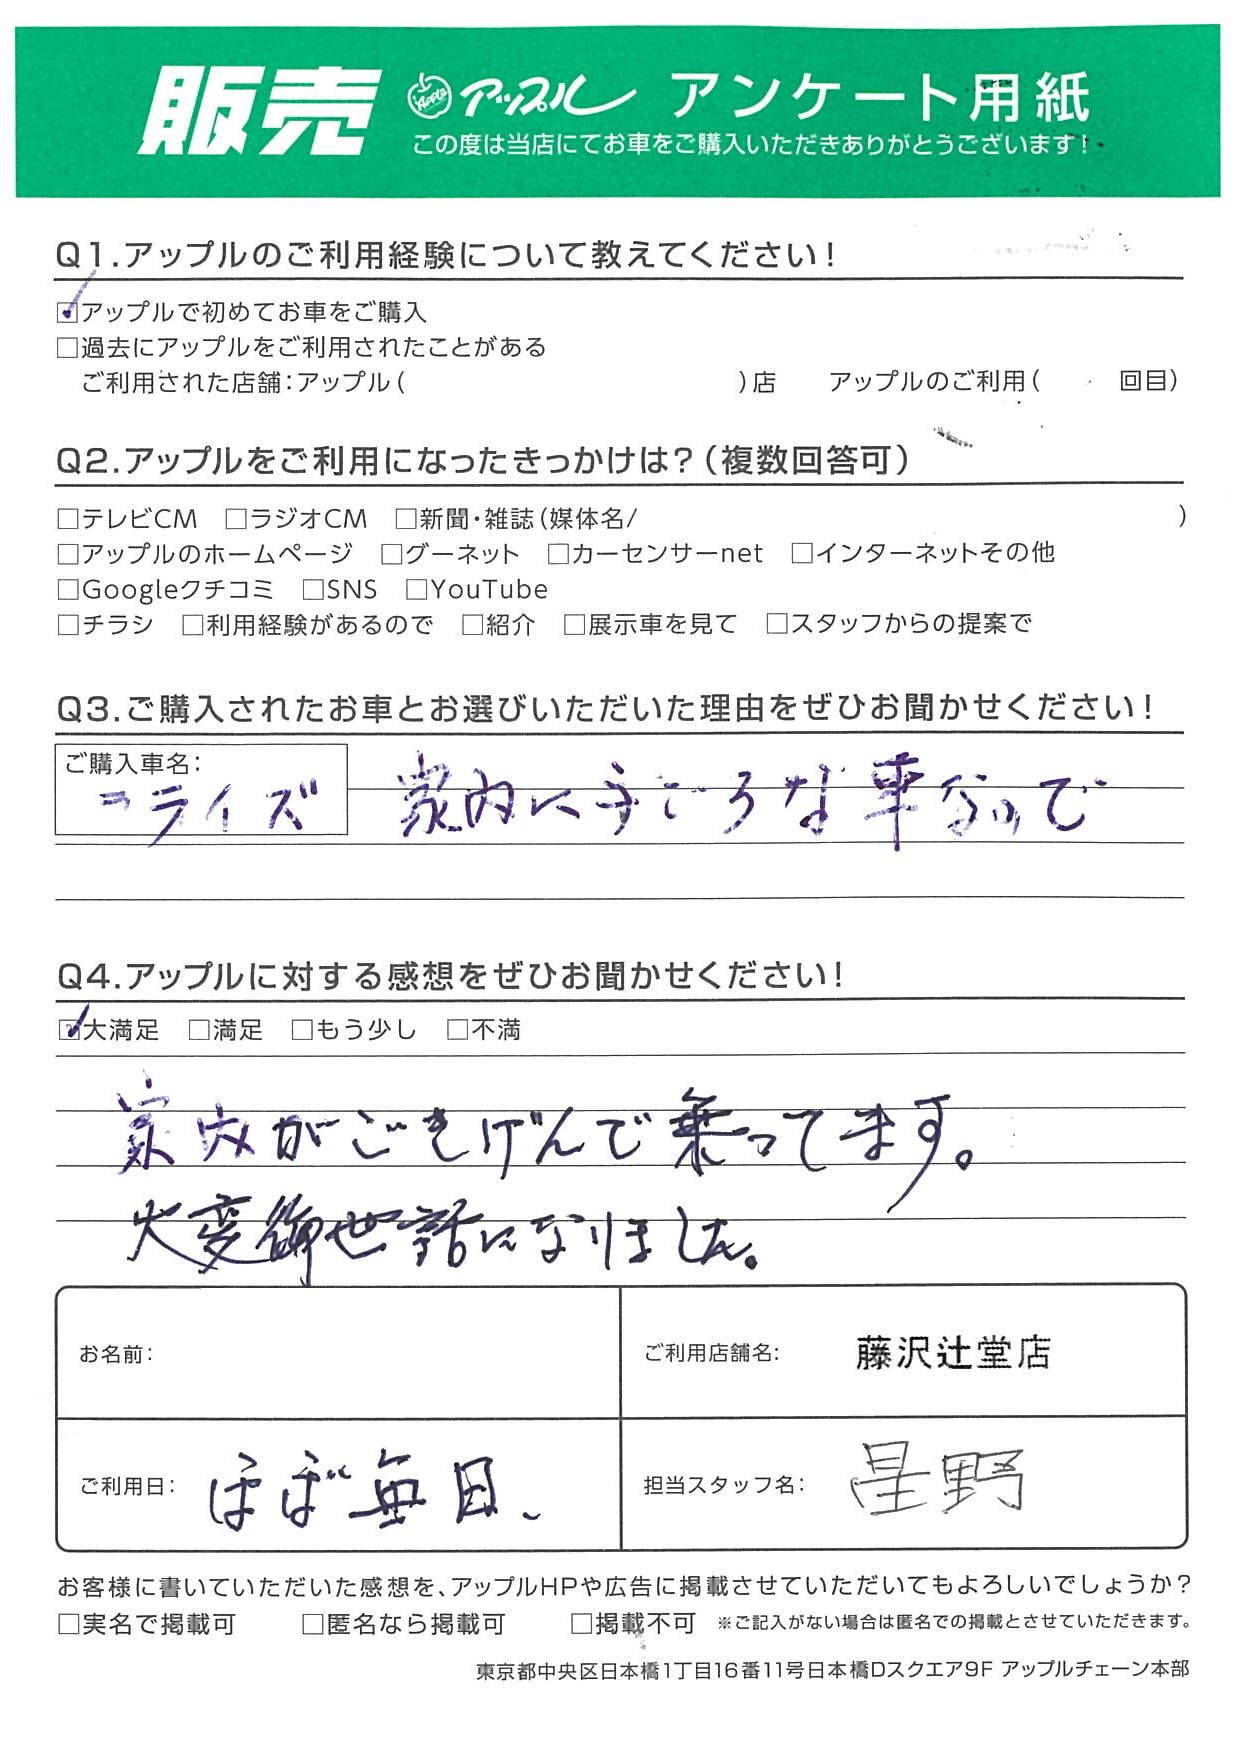 販売 Apple アップル アンケート用紙
この度は当店にてお車をご購入いただきありがとうございます！
Q1.アップルのご利用経験について教えてください！
☑アップルで初めてお車をご購入
□過去にアップルをご利用されたことがある
ご利用された店舗：アップル（ ）店 アップルのご利用（ 回目）
Q2.アップルをご利用になったきっかけは？（複数回答可）
□テレビCM □ラジオCM □新聞・雑誌（媒体名/ ）
□アップルのホームページ □グーネット □カーセンサーnet □インターネットその他
□Googleクチコミ □SNS □YouTube
□チラシ □利用経験があるので □紹介 □展示車を見て □スタッフからの提案で
Q3.ご購入されたお車とお選びいただいた理由をぜひお聞かせください！
ご購入車名：
ライズ 家内に手ごろな車なので
Q4.アップルに対する感想をぜひお聞かせください！
☑大満足 □満足 □もう少し □不満
家内がごきげんで乗ってます。
大変御世話になりました。
お名前： ご利用店舗名： 藤沢辻堂店
ご利用日： ほぼ毎日、 担当スタッフ名： 星野
お客様に書いていただいた感想を、アップルHPや広告に掲載させていただいてもよろしいでしょうか？
□実名で掲載可 □匿名なら掲載可 □掲載不可 ※ご記入がない場合は匿名での掲載とさせていただきます。
東京都中央区日本橋1丁目16番11号日本橋Dスクエア9F アップルチェーン本部